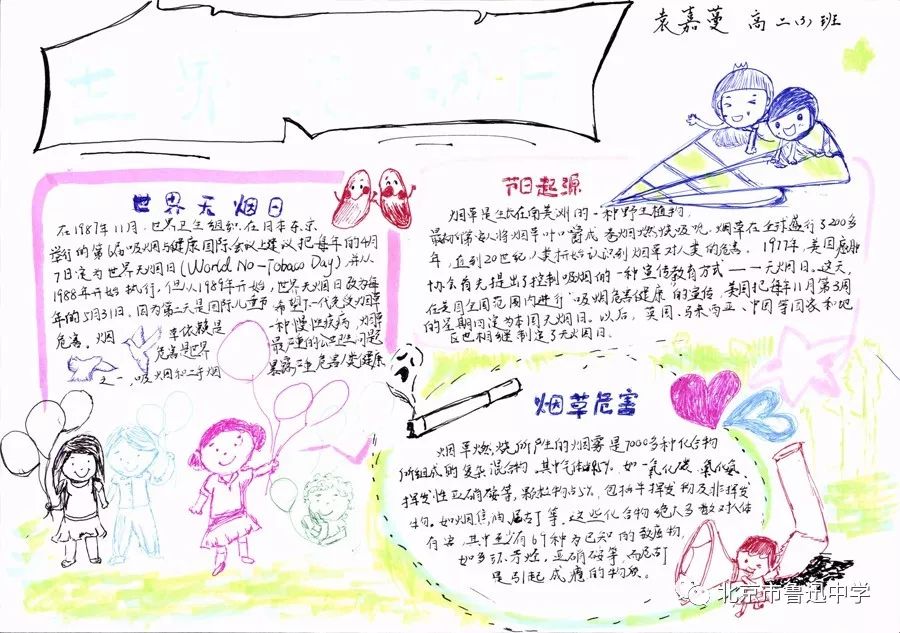 袁嘉蔓 高二(3)班
世界无烟日
世界无烟日
在1987年11月,世界卫生组织在日本东京
举行的第6届吸烟与健康国际会议上建议把每年的4月
7日定为世界无烟日(World No-Tobaco Day)并从
1988年开始执行。但从1989年开始,世界无烟日改为每
年的5月31日,因为第二天是国际儿童节
希望下一代免受烟草
危害。烟草依赖是
一种慢性疾病,烟草
危害是世界
最严重的公卫问题
之一,吸烟和二手烟
暴露产生危害人类健康
节日起源
烟草是生长在南美洲的一种野生植物,
烟草在全球盛行了200多
年,直到20世纪人类才开始认识到烟草对人类的危害。1977年,美国癌肿
协会首先提出了控制吸烟的一种宣传教育方式——无烟日。这天,
在美国全国范围内进行“吸烟危害健康”的宣传,美国把每年11月第3周
的星期四定为本国无烟日。以后,英国、马来西亚、中国等国家和地
区也相继制定了无烟日。
烟草危害
烟草燃烧所产生的烟雾是7000多种化合物
所组成的复杂混合物,其中气体占95%,如一氧化碳、氰化氢、
挥发性亚硝胺等,颗粒物占5%,包括半挥发物及非挥发
物,如烟焦油、尼古丁等,这些化合物绝大多数对人体
有害,其中至少有69种为已知的致癌物,
如多环芳烃,亚硝胺等,而尼古丁
是引起成瘾的物质。
北京市鲁迅中学